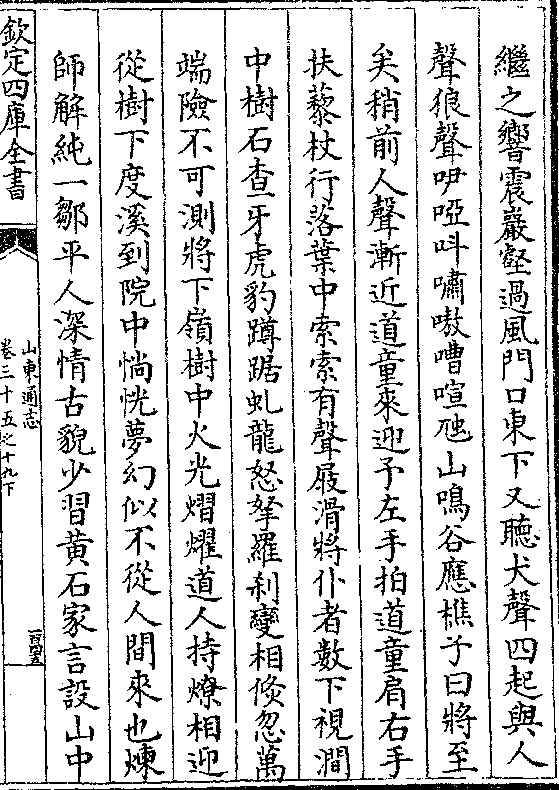 繼之響震巖壑過風門口東下又聽犬聲四起與人
聲狼聲吚啞呌嘯嗷嘈喧豗山鳴谷應樵子曰將至
矣稍前人聲漸近道童來迎予左手拍道童肩右手
扶藜杖行落葉中索索有聲屐滑將仆者數下視澗
中樹石查牙虎豹蹲踞虬龍怒拏羅刹變相倐忽萬
端險不可測將下嶺樹中火光熠燿道人持燎相迎
從樹下度溪到院中惝恍夢幻似不從人間來也煉
師解純一鄒平人深情古貌少習黄石家言設山中
欽定四庫全書
山東通志
卷三十五之十九下
一百四五